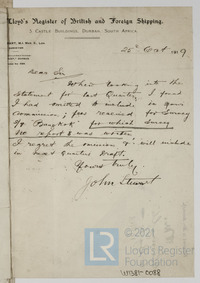 Lloyd's Register of British and Foreign Shipping.
3 Castle Buildings, Durban, South Africa.
25th Oct 1919
Dear Sir
When looking into the
Statement for last Quarter, I found
I had omitted to include in your
Commission, fees received for Survey
for which Survey
no report was written.
I regret the omission & will include
in next Quarter's Draft.
Yours truly,
John Stewart
©2021
Lloyd's Register
Foundation
W1381-0088